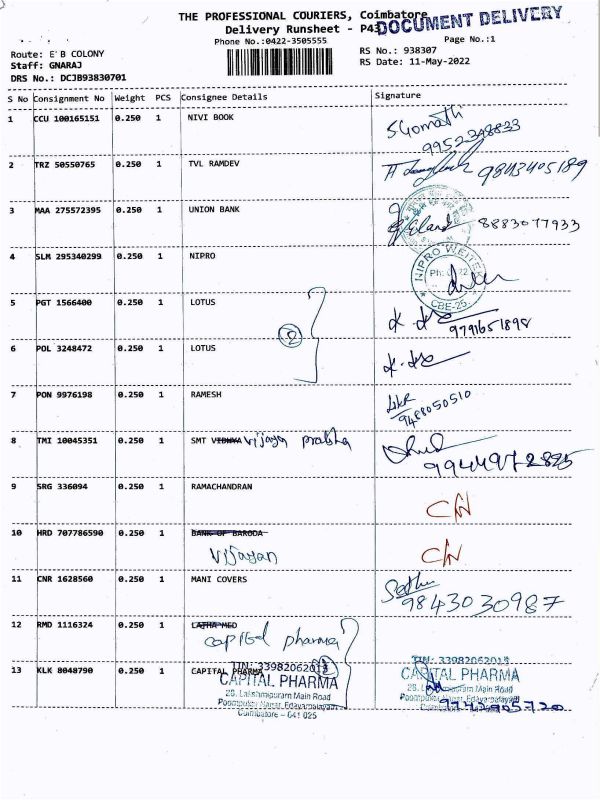 THE PROFESSIONAL COURIERS, Coimbatore
DOCUMENT DELIVERY
Delivery Runsheet - P43
Phone No.:0422-3505555
Page No.:1
Route: E'B COLONY
RS No.: 938307
Staff: GNARAJ
RS Date: 11-May-2022
DRS No.: DCJB93830701
S No Consignment No Weight PCS Consignee Details Signature
1 CCU 100165151 0.250 1 NIVI BOOK
SGomathi
2 TRZ 50550765 0.250 1 TVL RAMDEV
9843405189
3 MAA 275572395 0.250 1 UNION BANK
8883077933
4 SLM 295340299 0.250 1 NIPRO
NIPRO
CBE-25
5 PGT 1566400 0.250 1 LOTUS
9791651898
2
6 POL 3248472 0.250 1 LOTUS
7 PON 9976198 0.250 1 RAMESH
9488050510
8 TMI 10045351 0.250 1 SMT VIDHYA vijaya prabha
9944972825
9 SRG 336094 0.250 1 RAMACHANDRAN
C/N
10 HRD 707786590 0.250 1 BANK OF BARODA
Vijayan C/N
11 CNR 1628560 0.250 1 MANI COVERS
9843030987
12 RMD 1116324 0.250 1 LATHA MED
capital pharma
13 KLK 8048790 0.250 1 CAPITAL PHARMA 2
TIN: 33982062013
CAPITAL PHARMA
28, Lakshmipuram Main Road
Poompukar Nagar, Edayarpalayam
Coimbatore - 641 025
TIN: 33982062013
CAPITAL PHARMA
Main Road
9742905720